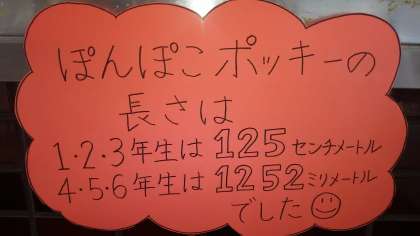 ぽんぽこポッキーの
長さは
1・2・3年生は125センチメートル
4・5・6年生は1252ミリメートル
でした